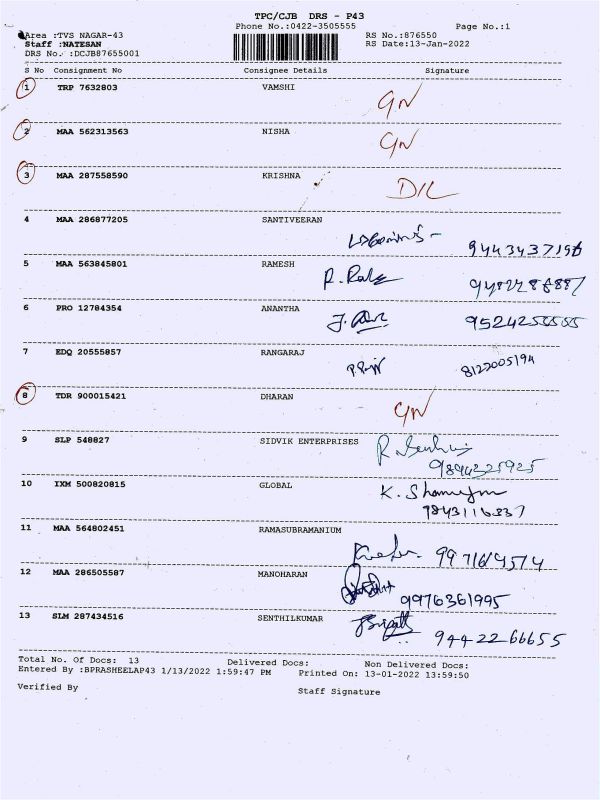 TPC/CJB DRS - P43
Phone No.:0422-3505555 Page No.:1
Area :TVS NAGAR-43 RS No.:876550
Staff :NATESAN RS Date:13-Jan-2022
DRS No. :DCJB87655001
S No Consignment No Consignee Details Signature
1 TRP 7632803 VAMSHI
GN
2 MAA 562313563 NISHA
GN
3 MAA 287558590 KRISHNA
D/L
4 MAA 286877205 SANTIVEERAN
5 MAA 563845801 RAMESH
6 PRO 12784354 ANANTHA
7 EDQ 20555857 RANGARAJ
8122005194
8 TDR 900015421 DHARAN
GN
9 SLP 548827 SIDVIK ENTERPRISES
9894325925
10 IXM 500820815 GLOBAL
9843116337
11 MAA 564802451 RAMASUBRAMANIUM
12 MAA 286505587 MANOHARAN
9976361995
13 SLM 287434516 SENTHILKUMAR
9442266655
Total No. Of Docs: 13 Delivered Docs: Non Delivered Docs:
Entered By :BPRASHEELAP43 1/13/2022 1:59:47 PM Printed On: 13-01-2022 13:59:50
Verified By Staff Signature